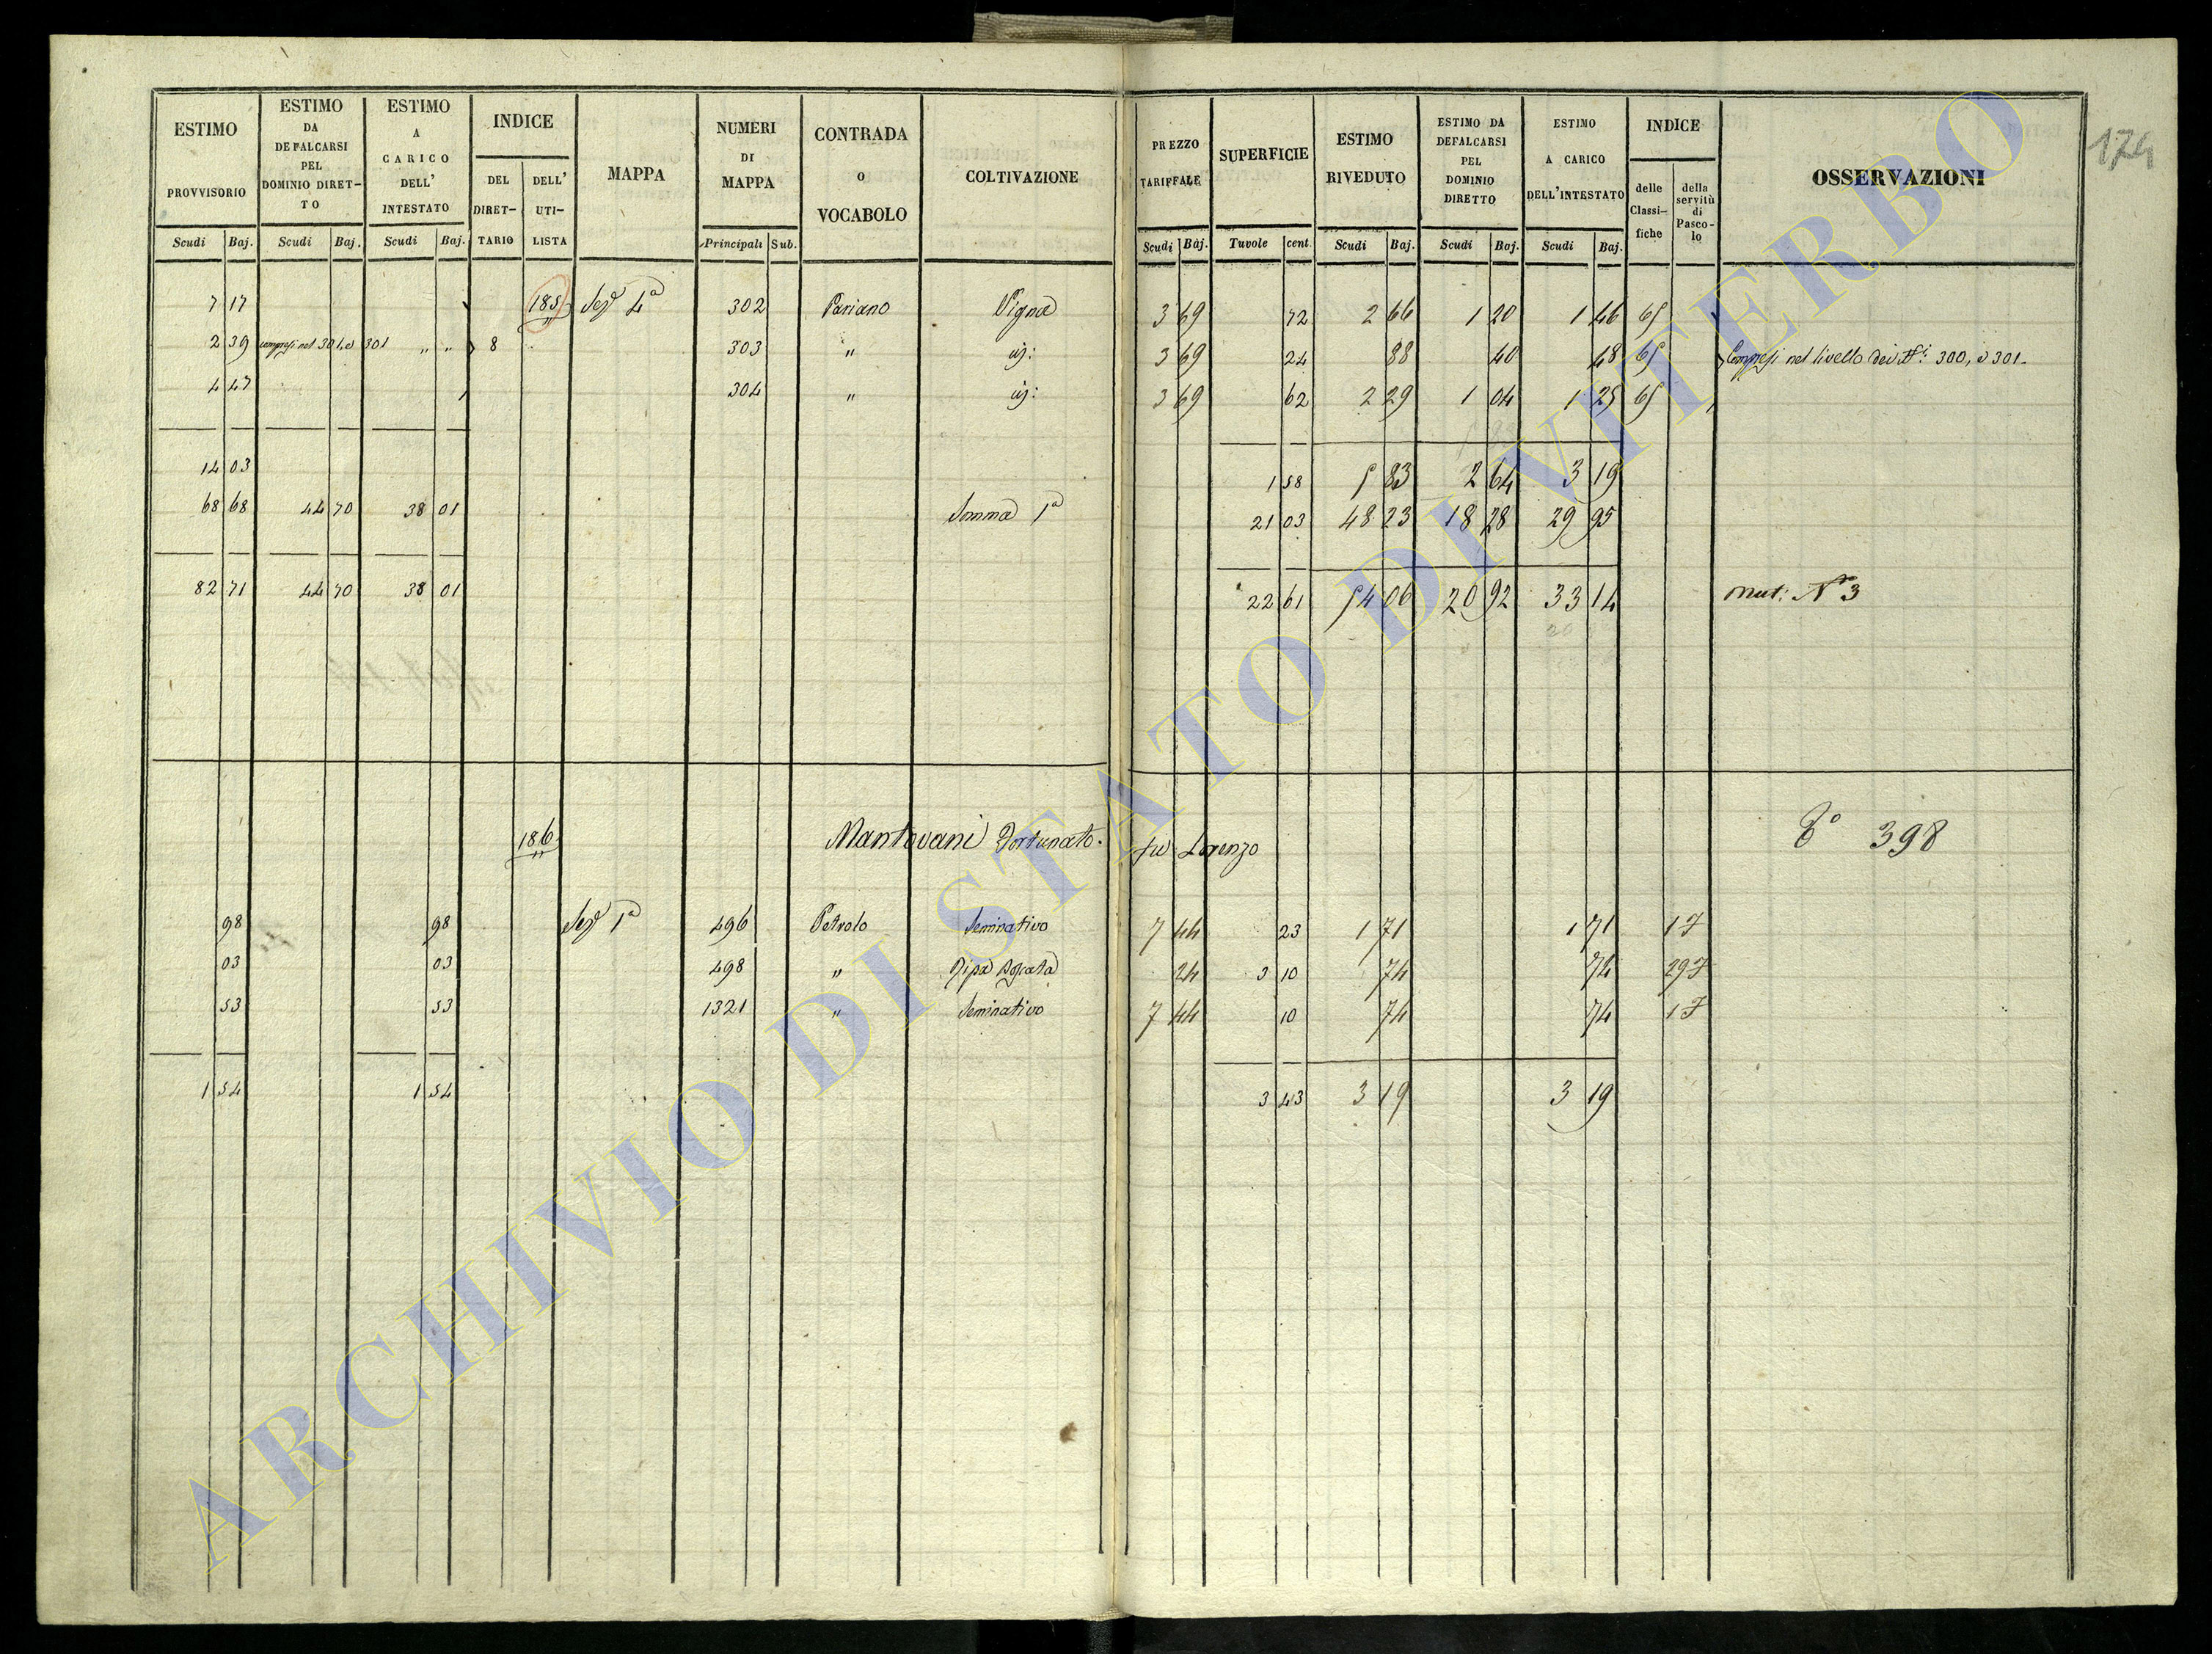 174
ESTIMO PROVVISORIO | ESTIMO DA DEFALCARSI PEL DOMINIO DIRET-TO | ESTIMO A CARICO DELL' INTESTATO | INDICE | MAPPA | NUMERI DI MAPPA | CONTRADA O VOCABOLO | COLTIVAZIONE | PREZZO TARIFFALE | SUPERFICIE | ESTIMO RIVEDUTO | ESTIMO DA DEFALCARSI PEL DOMINIO DIRETTO | ESTIMO A CARICO DELL'INTESTATO | INDICE | OSSERVAZIONI
DEL DIRET-TARIO | DELL' UTI-LISTA | delle Classi-fiche | della servitù di Pasco-lo
Scudi Baj. | Scudi Baj. | Scudi Baj. | Principali Sub. | Scudi Baj. | Tavole cent. | Scudi Baj. | Scudi Baj. | Scudi Baj.
7 17 | 185 | Sez 4a | 302 | Pariano | Vigna | 3 69 | 72 | 2 66 | 1 20 | 1 46 | 65
2 39 | compresi nel 301, e 301 " " | 8 | 303 | " | id: | 3 69 | 24 | 88 | 40 | 48 | 65 | Compresi nel livello dei Ni 300, e 301.
4 47 | 304 | " | id: | 3 69 | 62 | 2 29 | 1 04 | 1 25 | 65
14 03 | 1 58 | 5 83 | 2 64 | 3 19
68 68 | 44 70 | 38 01 | Somma 1a | 21 03 | 48 23 | 18 28 | 29 95
82 71 | 44 70 | 38 01 | 22 61 | 54 06 | 20 92 | 33 14 | Mut: No 3
186 | Mantovani Fortunato. fu Lorenzo | 398
98 | 98 | Sez 1a | 496 | Petrolo | Seminativo | 7 44 | 23 | 1 71 | 1 71 | 17
03 | 03 | 498 | " | Ripa boscata | 24 | 3 10 | 74 | 74 | 297
53 | 53 | 1321 | " | Seminativo | 7 44 | 10 | 74 | 74 | 17
1 54 | 1 54 | 3 43 | 3 19 | 3 19
ARCHIVIO DI STATO DI VITERBO